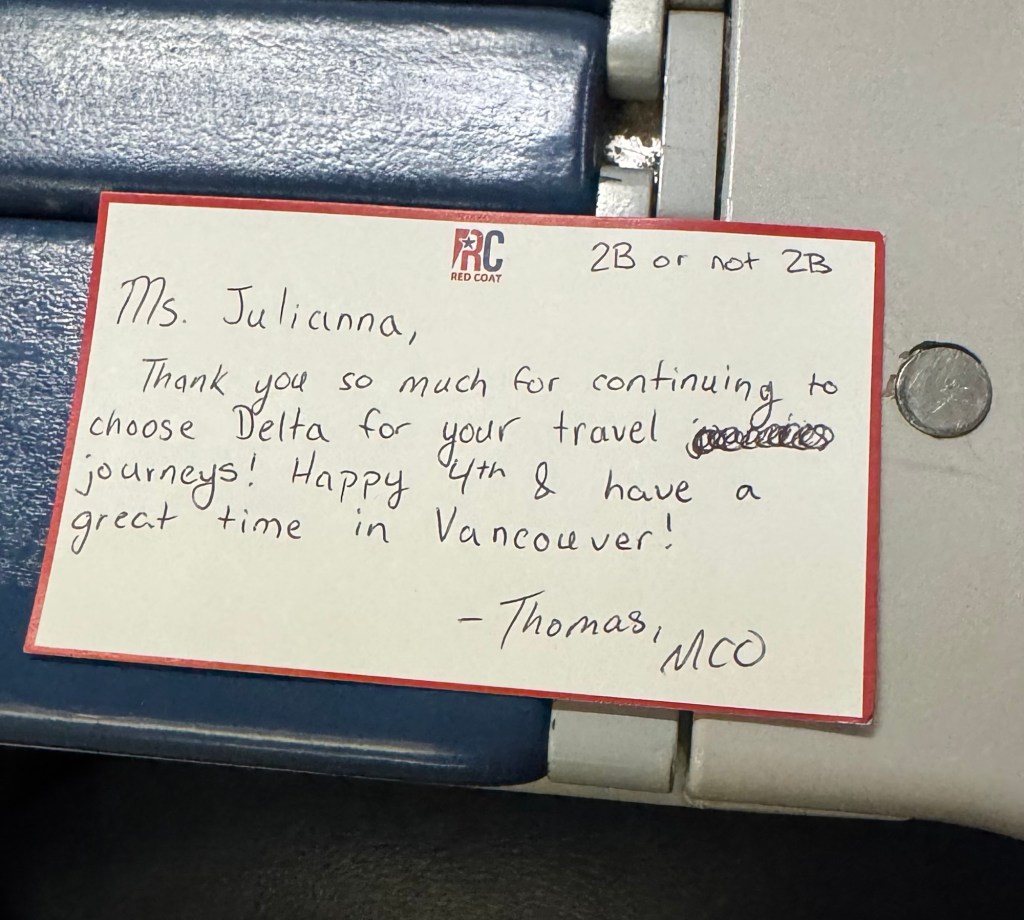 RC
RED COAT
2B or not 2B
Ms. Julianna,
Thank you so much for continuing to
choose Delta for your travel
journeys! Happy 4th & have a
great time in Vancouver!
- Thomas, MCO